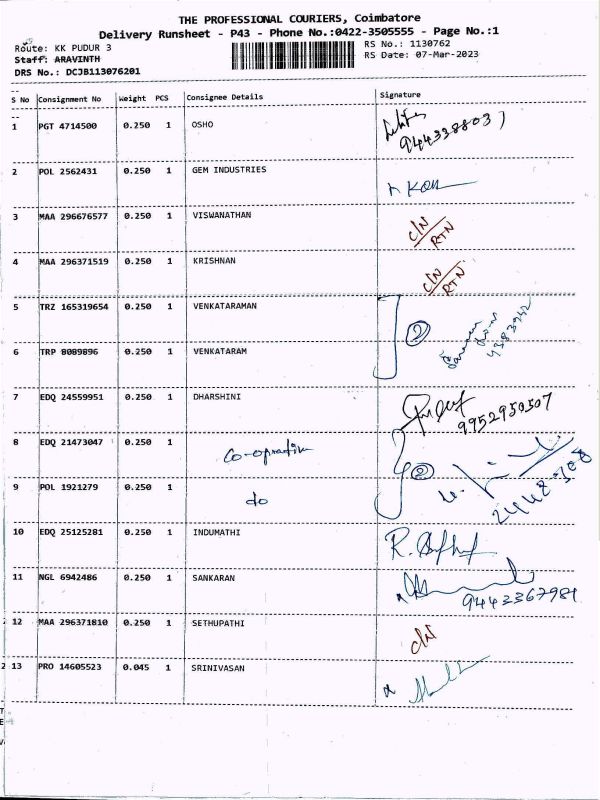 THE PROFESSIONAL COURIERS, Coimbatore
Delivery Runsheet - P43 - Phone No.:0422-3505555 - Page No.:1
Route: KK PUDUR 3
RS No.: 1130762
Staff: ARAVINTH
RS Date: 07-Mar-2023
DRS No.: DCJB113076201
S No Consignment No Weight PCS Consignee Details Signature
1 PGT 4714500 0.250 1 OSHO
2 POL 2562431 0.250 1 GEM INDUSTRIES
3 MAA 296676577 0.250 1 VISWANATHAN C/N RTN
4 MAA 296371519 0.250 1 KRISHNAN C/N RTN
5 TRZ 165319654 0.250 1 VENKATARAMAN 2
6 TRP 8089896 0.250 1 VENKATARAM
7 EDQ 24559951 0.250 1 DHARSHINI 9952950507
8 EDQ 21473047 0.250 1 Co-opration 2
9 POL 1921279 0.250 1 do
10 EDQ 25125281 0.250 1 INDUMATHI
11 NGL 6942486 0.250 1 SANKARAN 9443367981
12 MAA 296371810 0.250 1 SETHUPATHI C/N
2 13 PRO 14605523 0.045 1 SRINIVASAN